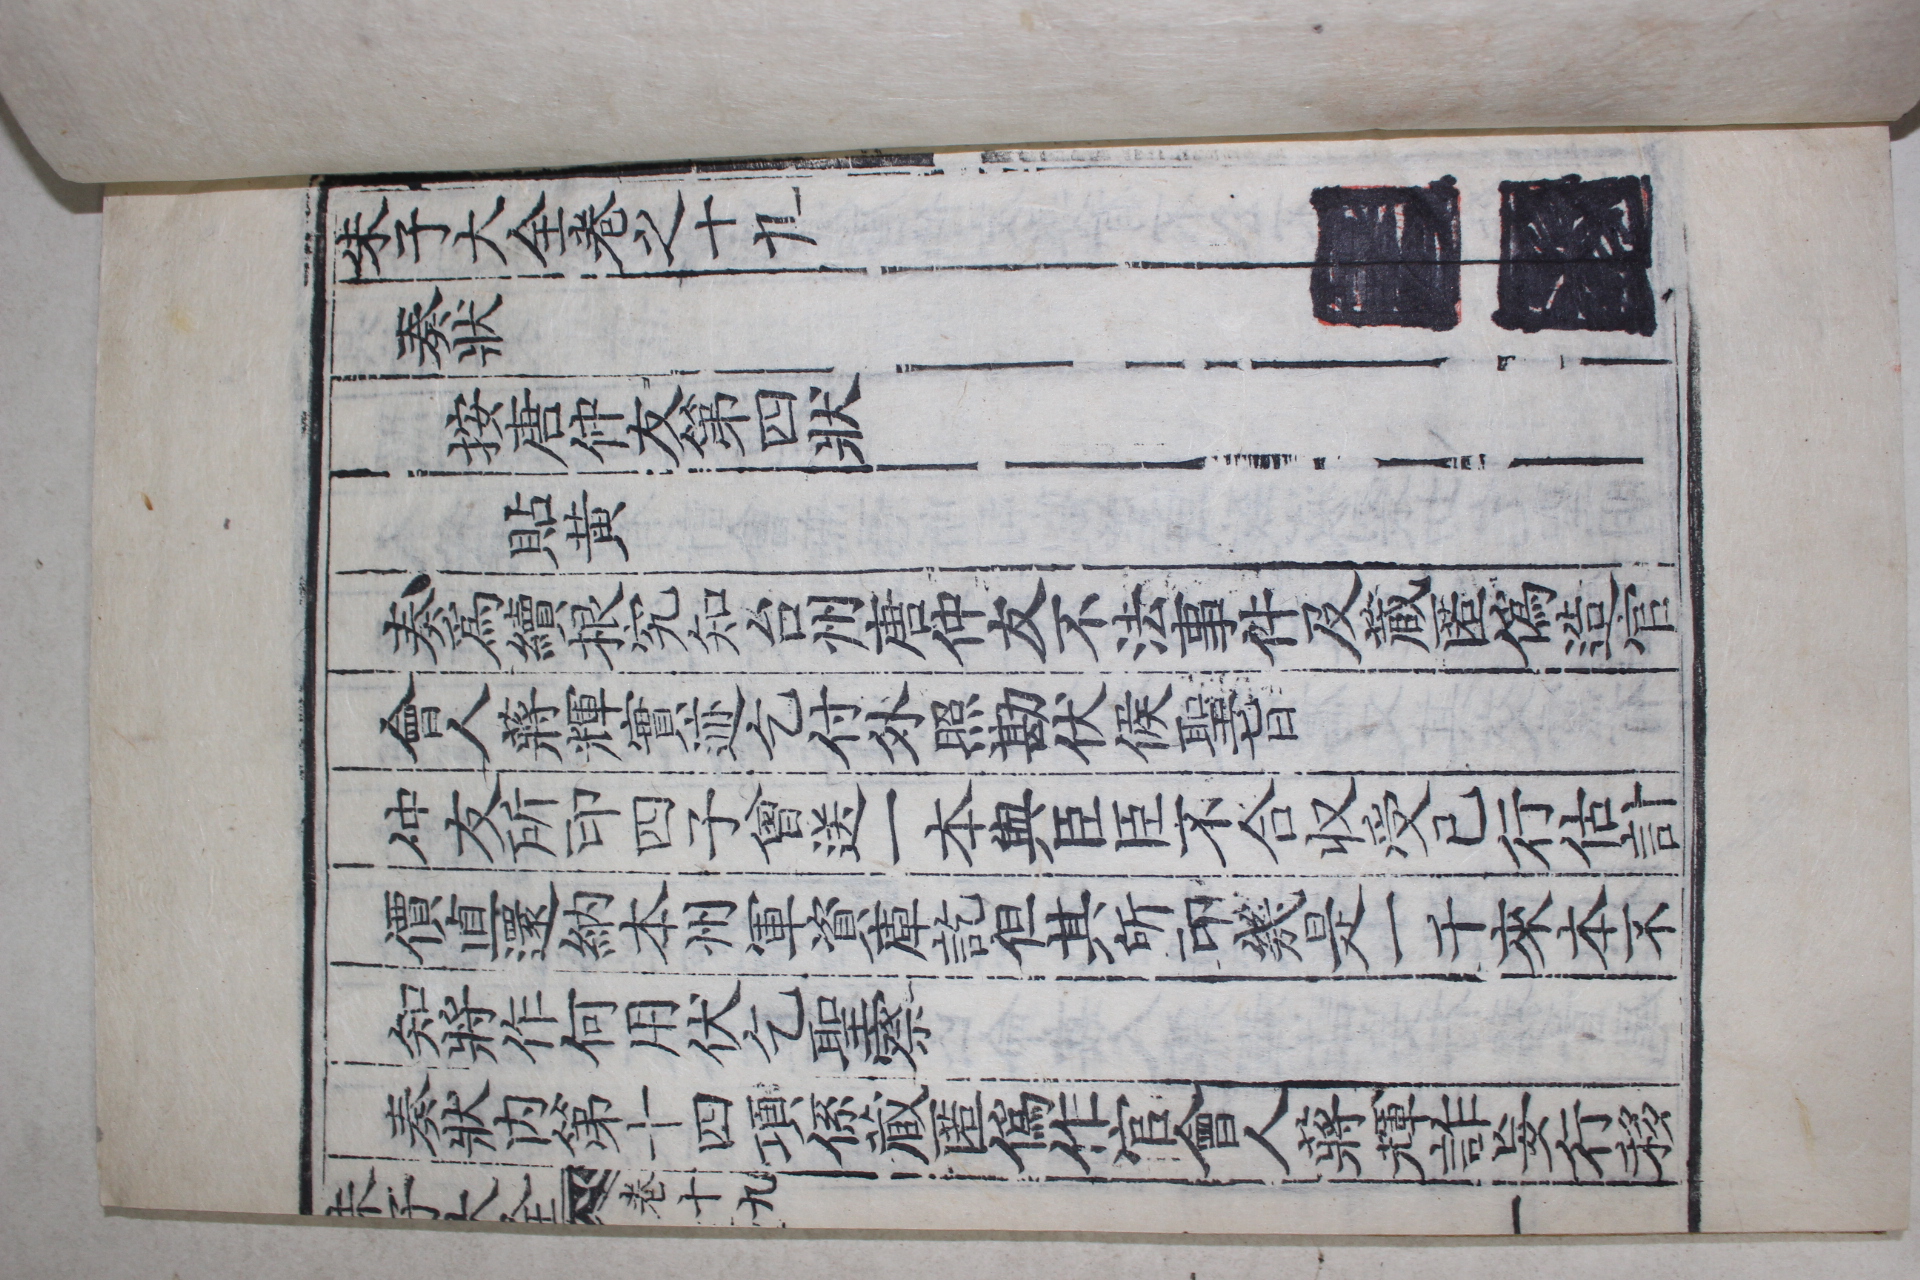 朱子大全卷之十九
奏狀
按唐仲友第四狀
貼黃
奏爲續根究知台州唐仲友不法事件及藏匿僞造官
會人蔣輝實迹乞付外照勘伏候聖旨
仲友所印四子曾送一本與臣臣不合收受已行估計
價直還納本州軍資庫訖但其所印幾是一千來本不
知將作何用伏乞聖察
奏狀內第十四項係藏匿僞作官會人蔣輝詐妄行移
朱子大全 卷十九 一